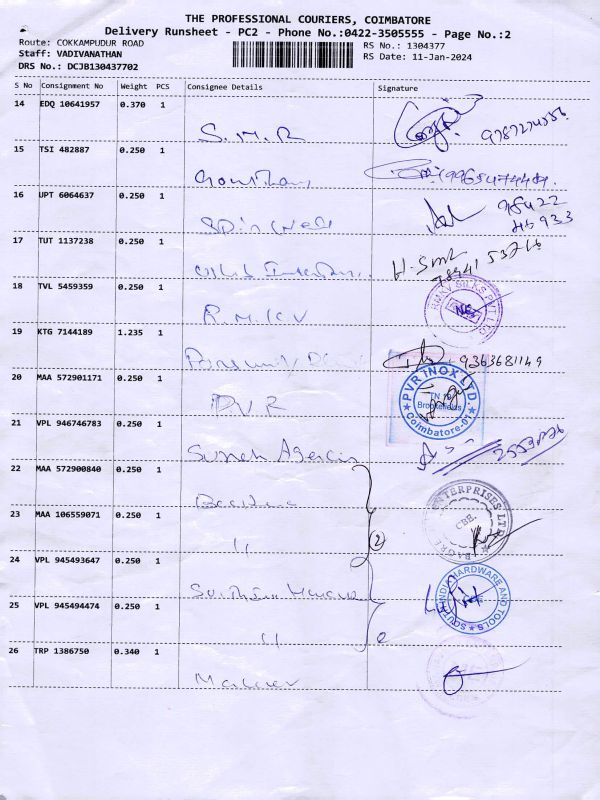 THE PROFESSIONAL COURIERS, COIMBATORE
Delivery Runsheet - PC2 - Phone No.:0422-3505555 - Page No.:2
Route: COKKAMPUDUR ROAD RS No.: 1304377
Staff: VADIVANATHAN RS Date: 11-Jan-2024
DRS No.: DCJB130437702
S No Consignment No Weight PCS Consignee Details Signature
14 EDQ 10641957 0.370 1
S.M.R
15 TSI 482887 0.250 1
Gowtham 9965474489
16 UPT 6064637 0.250 1
98422
45933
17 TUT 1137238 0.250 1
18 TVL 5459359 0.250 1
R.M.K.V
RMKV SILKS PVT LTD
19 KTG 7144189 1.235 1
9363681149
20 MAA 572901171 0.250 1
PVR
PVR INOX LTD.
TN
Brookefields
Coimbatore-01
21 VPL 946746783 0.250 1
Suresh Agencies
22 MAA 572900840 0.250 1
ENTERPRISES LTD
CBE.
23 MAA 106559071 0.250 1
11
2
24 VPL 945493647 0.250 1
SOUTH INDIA HARDWARE AND TOOLS
25 VPL 945494474 0.250 1
11
26 TRP 1386750 0.340 1